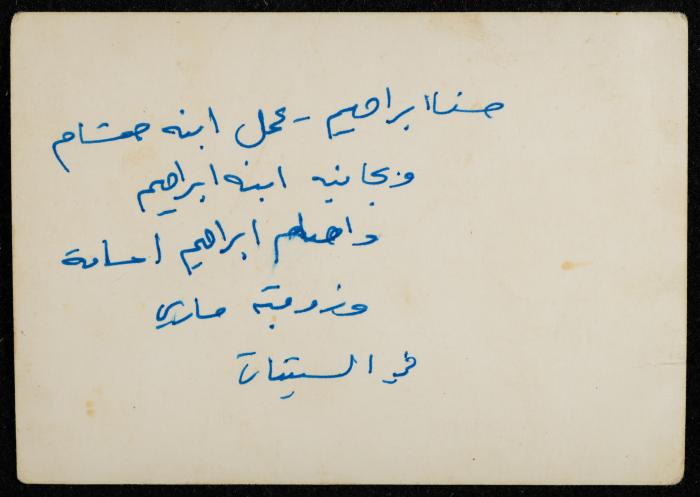 حنا ابراهيم - يحمل ابنه هشام
وبجانبه ابنه ابراهيم
واحلام ابراهيم اسامة
وزوجته ماري
في الستينات